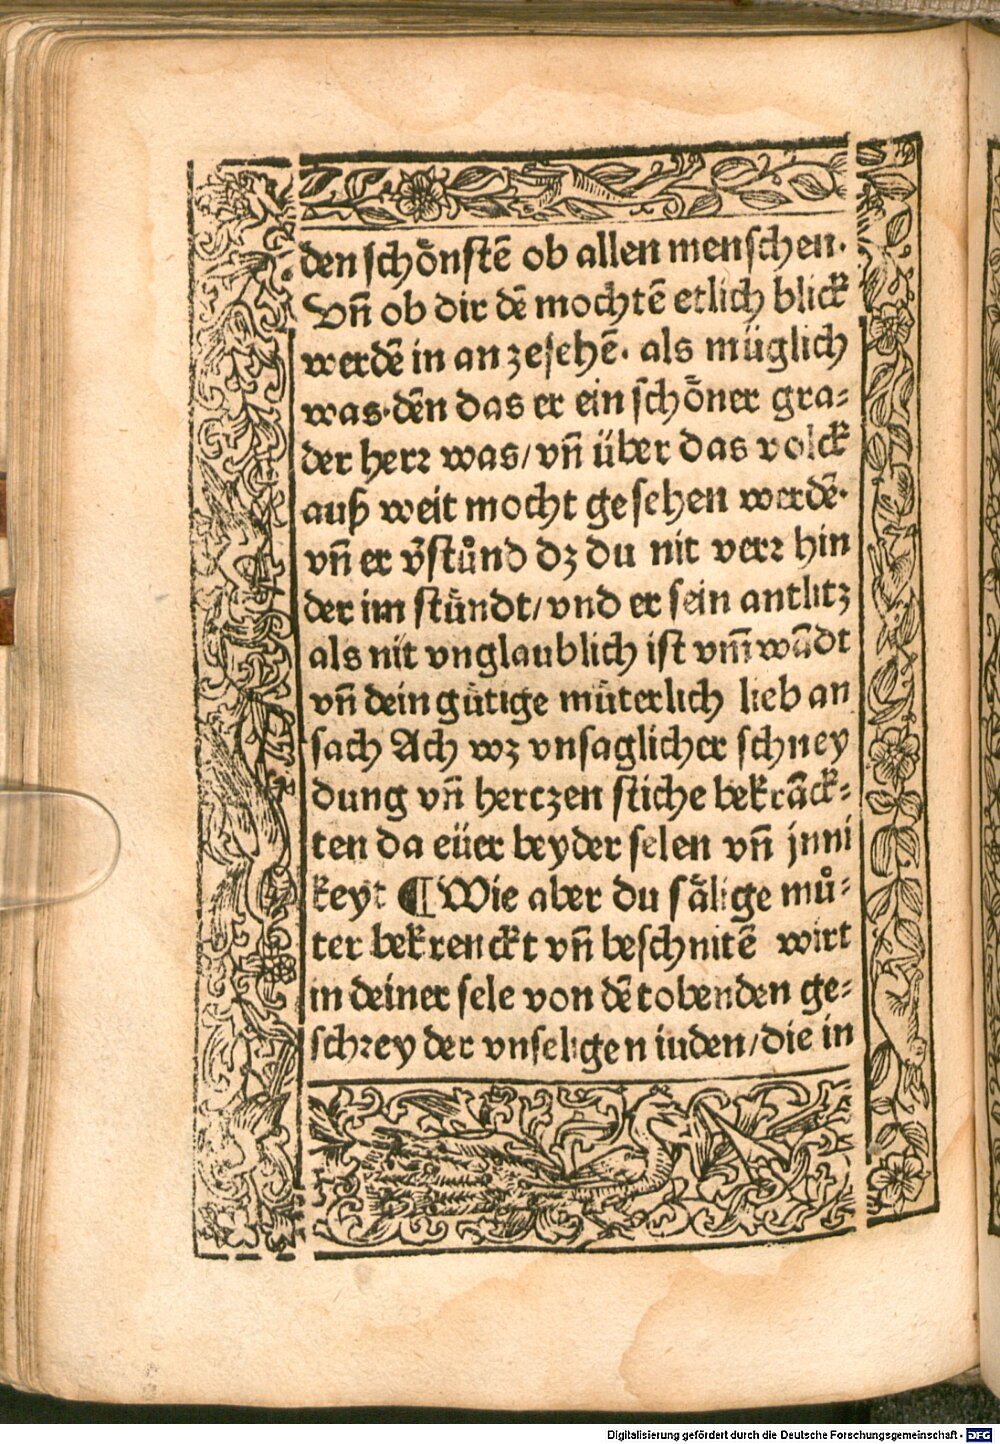 den schoͤnstē ob allen menschen·
Vn̄ ob dir dē mochtē etlich blick
werdē in an zesehē· als müglich
was·dēn das er ein schoͤner gra⸗
der herꝛ was/vn̄ über das volck
auß weit mocht gesehen werdē·
vn̄ er v̄stuͦnd dz du nit verꝛ hin
der im stuͤndt/vnd er sein antlitz
als nit vnglaublich ist vm̄wādt
vn̄ dein guͤtige muͤterlich lieb an
sach Ach wz vnsaglicher schney
dung vn̄ hertzen stiche bekrāck⸗
ten da eüer beyder selen vn̄ jnni
keyt ¶ Wie aber du saͤlige muͦ⸗
ter bekrenckt vn̄ beschnitē wirt
in deiner sele von dē tobenden ge⸗
schꝛey der vnseligen iuden/die in
Digitalisierung gefördert durch die Deutsche Forschungsgemeinschaft - DFG